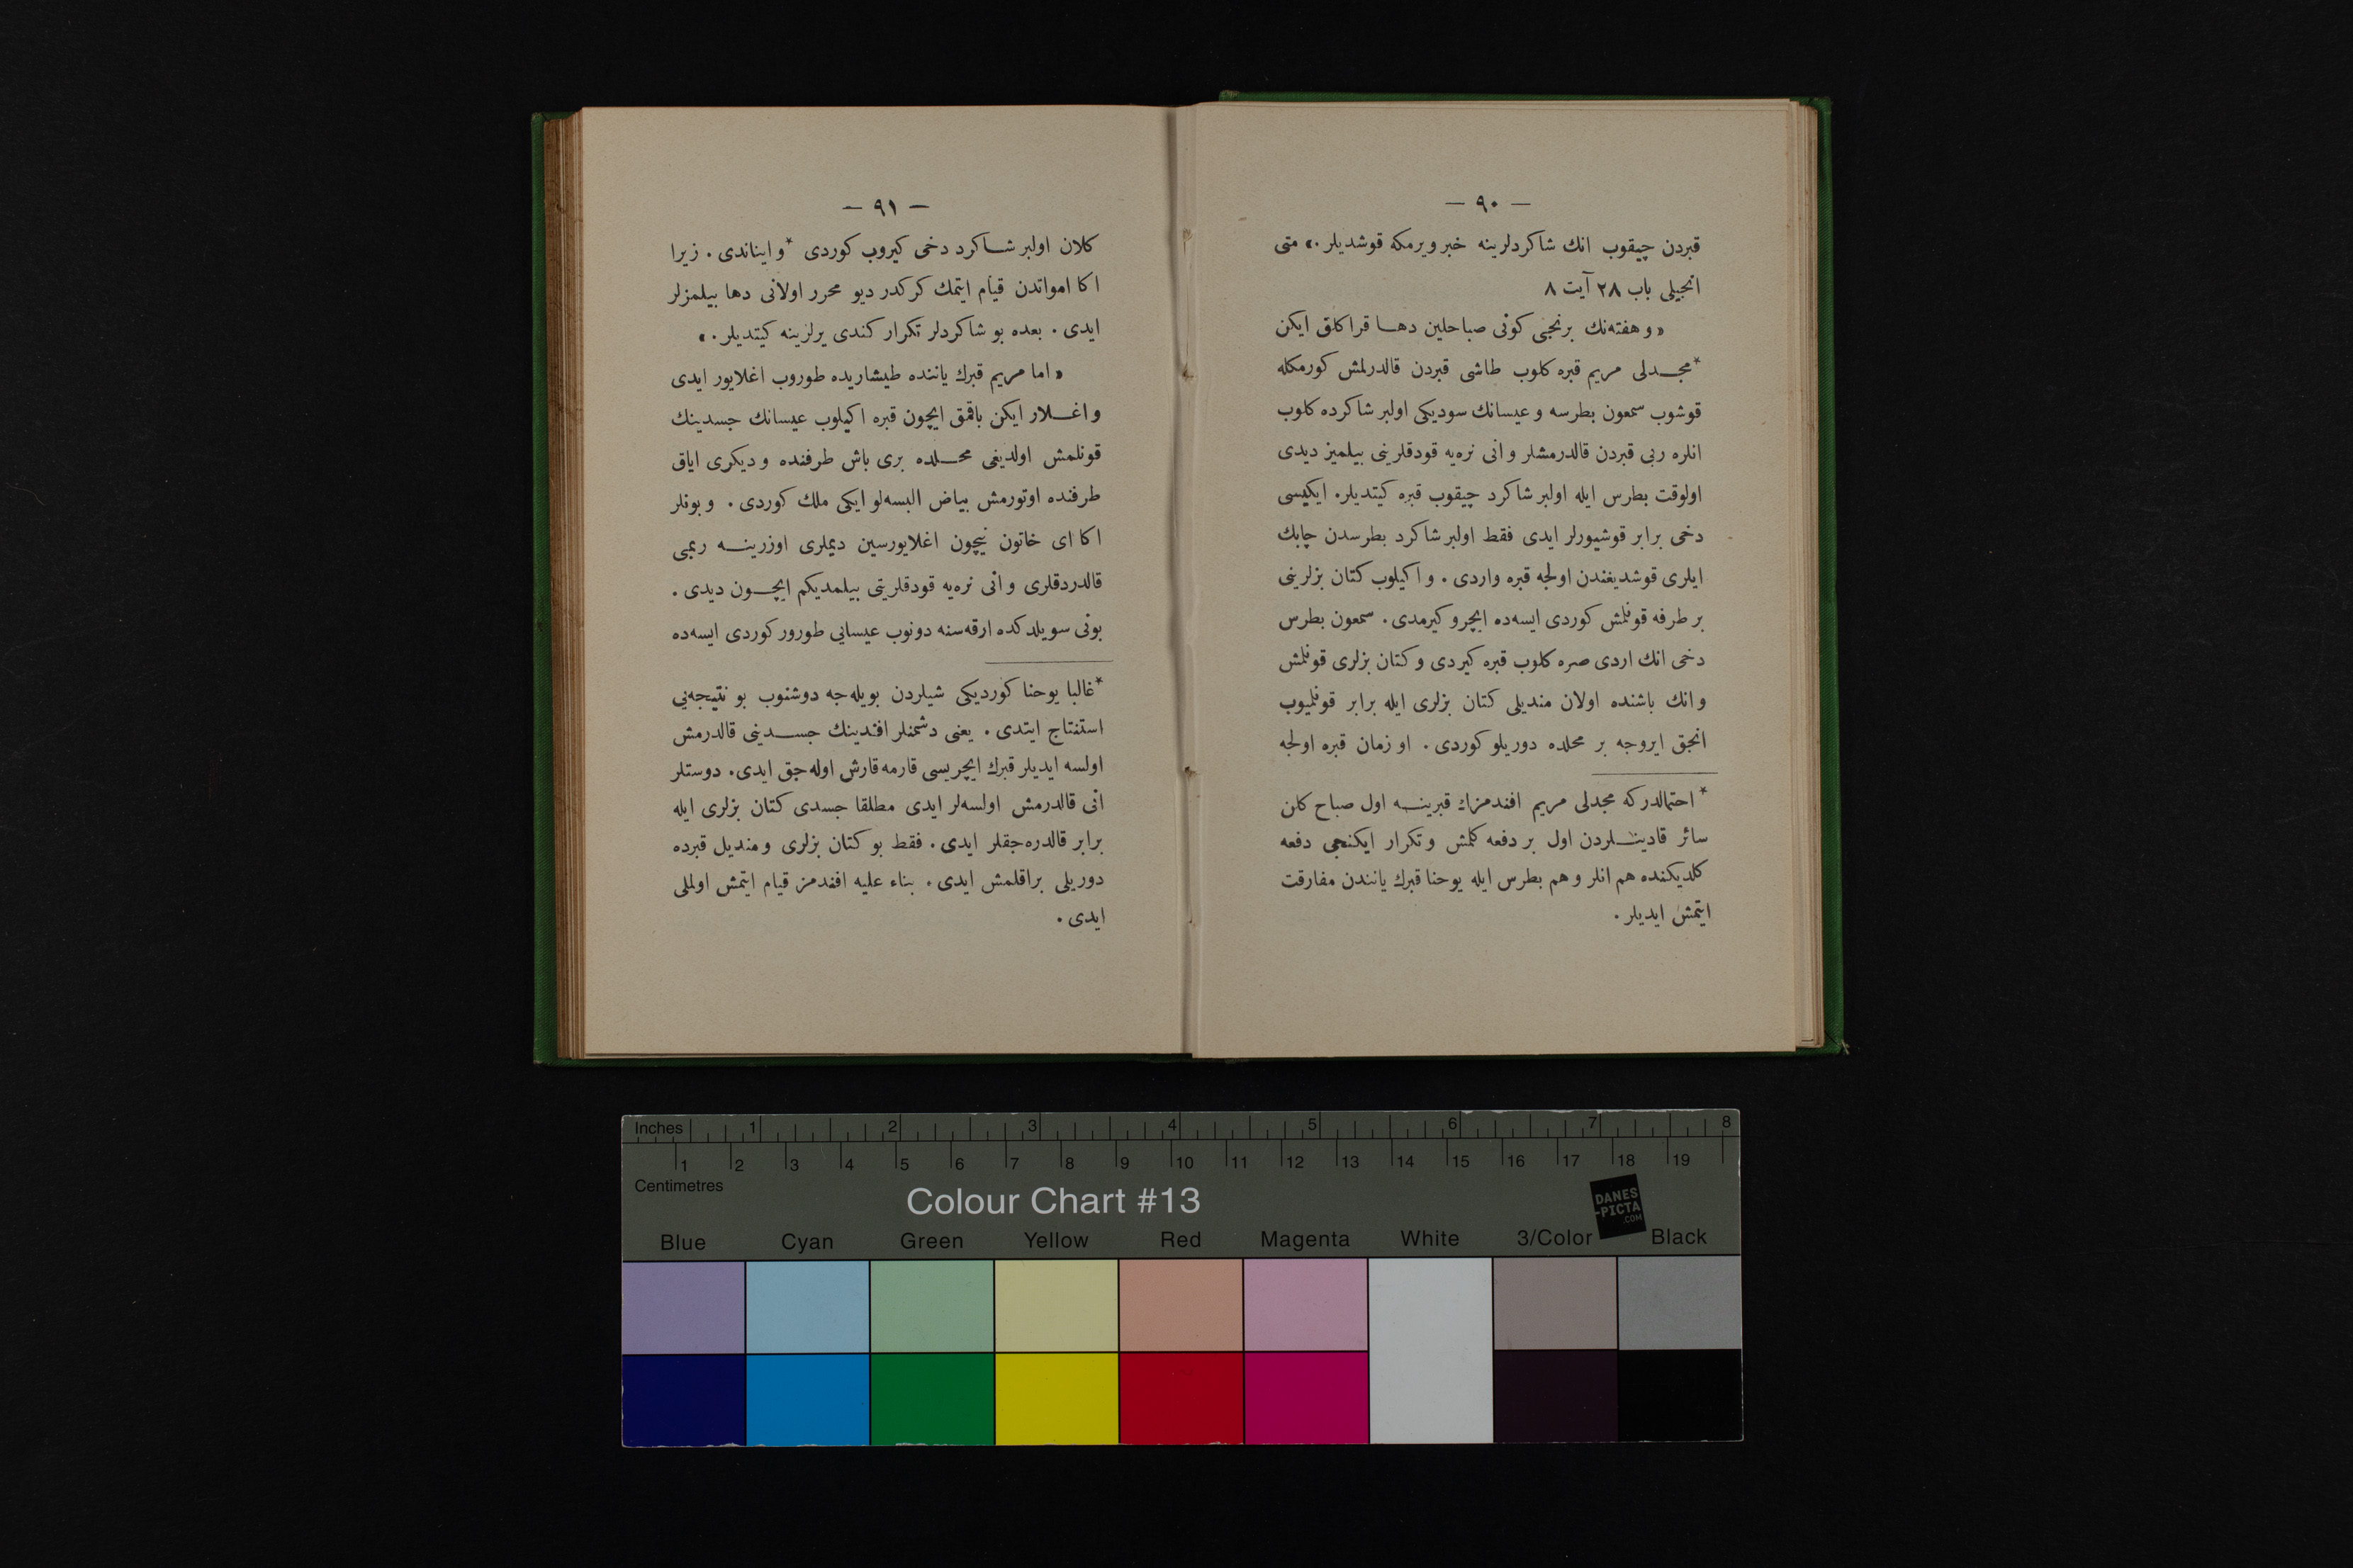 — ٩٠ —
قبردن چیقوب انك شاكردلرینه خبر ویرمكه قوشدیلر .» متی
انجیلی باب ٢٨ آیت ٨
« و هفته‌نك برنجی كونی صباحلین دهـا قراكلق ایكن
*مجـدلی مریم قبره كلوب طاشی قبردن قالدرلمش كورمكله
قوشوب سمعون بطرسه و عیسانك سودیكی اولبر شاكرده كلوب
انلره ربی قبردن قالدرمشلر و انی نره‌یه قودقلرینی بیلمیز دیدی
اولوقت بطرس ایله اولبر شاكرد چیقوب قبره كیتدیلر. ایكیسی
دخی برابر قوشیورلر ایدی فقط اولبر شاكرد بطرسدن چابك
ایلری قوشدیغندن اولجه قبره واردی . و اكیلوب كتان بزلرینی
بر طرفه قونلمش كوردی ایسه‌ده ایچرو كیرمدی . سمعون بطرس
دخی انك اردی صره كلوب قبره كیردی و كتان بزلری قونلمش
و انك باشنده اولان مندیلی كتان بزلری ایله برابر قونلمیوب
انجق ایروجه بر محلده دوریلو كوردی . او زمان قبره اولجه
* احتمالدركه مجدلی مریم افندمزك قبرینــه اول صباح كلن
سائر قادینـلردن اول بر دفعه كلمش و تكرار ایكنجی دفعه
كلدیكنده هم انلر و هم بطرس ایله یوحنا قبرك یانندن مفارقت
ایتمش ایدیلر .
— ٩١ —
كلان اولبر شـاكرد دخی كیروب كوردی *و ایناندی . زیرا
اكا امواتدن قیام ایتمك كركدر دیو محرر اولانی دها بیلمزلر
ایدی . بعده بو شاكردلر تكرار كندی یرلرینه كیتدیلر .»
« اما مریم قبرك یاننده طیشاریده طوروب اغلایور ایدی
و اغـلار ایكن باقمق ایچون قبره اكیلوب عیسانك جسدینك
قونلمش اولدیغی محـلده بری باش طرفنده و دیكری ایاق
طرفنده اوتورمش بیاض البسه‌لو ایكی ملك كوردی . و بونلر
اكا ای خاتون نیچون اغلایورسین دیملری اوزرینـه ربمی
قالدردقلری و انی نره‌یه قودقلرینی بیلمدیكم ایچـون دیدی .
بونی سویلدكده ارقه‌سنه دونوب عیسایی طورور كوردی ایسه‌ده
*غالبا یوحنا كوردیكی شیلردن بویله‌جه دوشنوب بو نتیجه‌یی
استنتاج ایتدی . یعنی دشمنلر افندینك جسـدینی قالدرمش
اولسه ایدیلر قبرك ایچریسی قارمه قارش اوله‌جق ایدی. دوستلر
انی قالدرمش اولسه‌لر ایدی مطلقا جسدی كتان بزلری ایله
برابر قالدره‌جقلر ایدی . فقط بو كتان بزلری و مندیل قبرده
دوریلی براقلمش ایدی . بناء علیه افندمز قیام ایتمش اولملی
ایدی .
Inches 1 2 3 4 5 6 7 8
1 2 3 4 5 6 7 8 9 10 11 12 13 14 15 16 17 18 19
Centimetres
Colour Chart #13
DANES
-PICTA
.COM
Blue Cyan Green Yellow Red Magenta White 3/Color Black